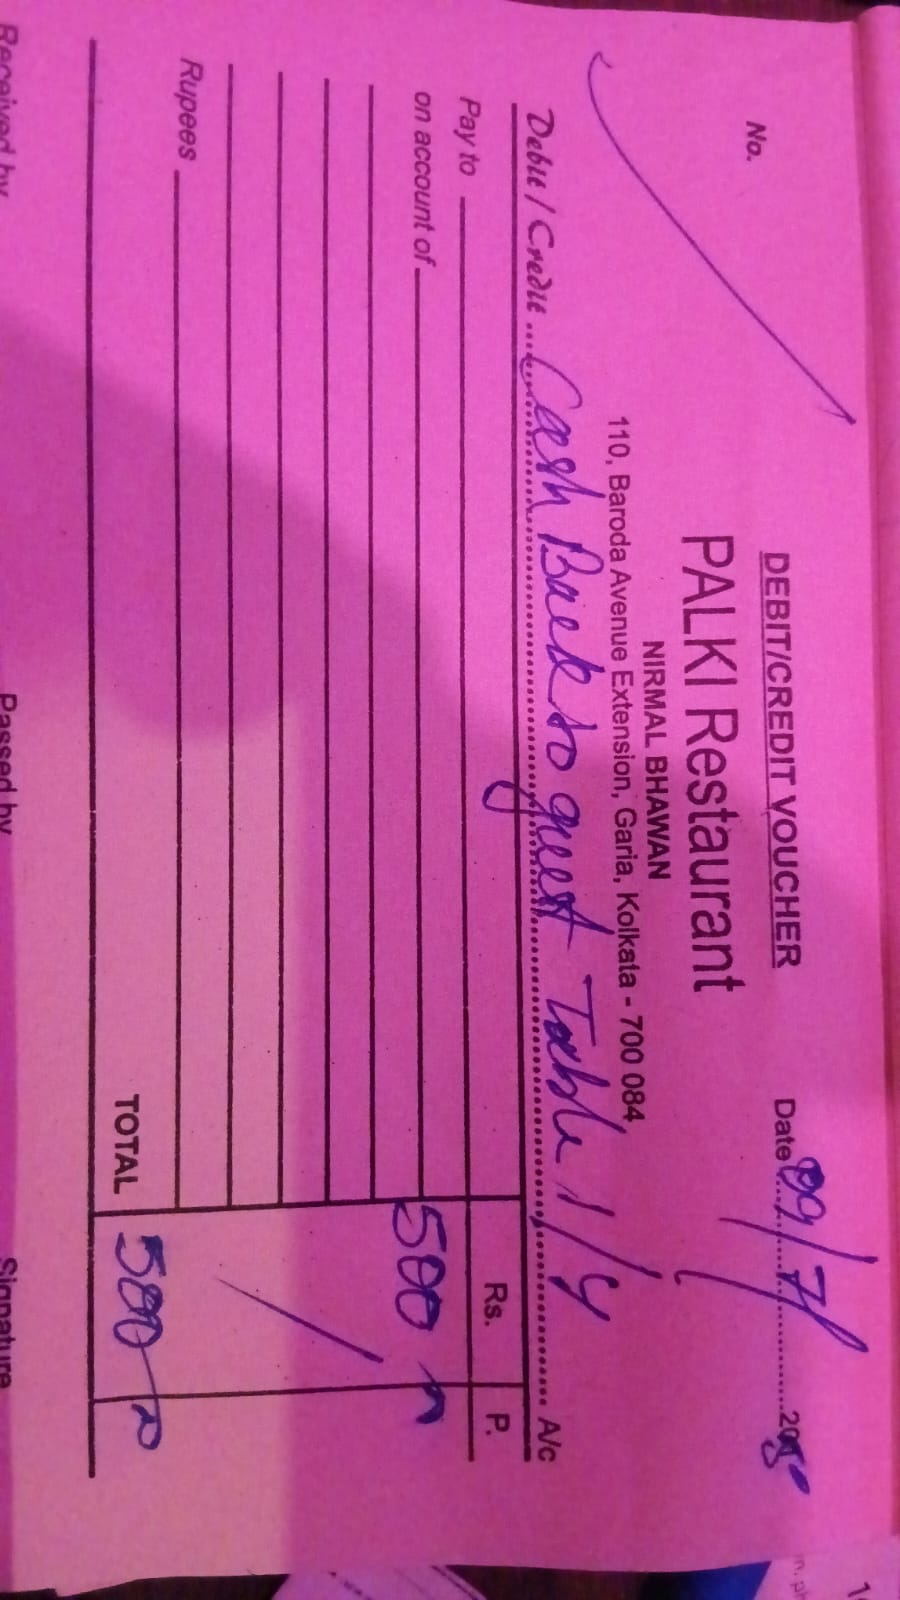 DEBIT/CREDIT VOUCHER
No.
PALKI Restaurant
Date 09/7/
NIRMAL BHAWAN
110, Baroda Avenue Extension, Garia, Kolkata - 700 084
Debit / Credit Cash Back to guest Table 1/4 A/c
Rs. P.
Pay to
on account of 500
Rupees
TOTAL 500
Received by Passed by Signature